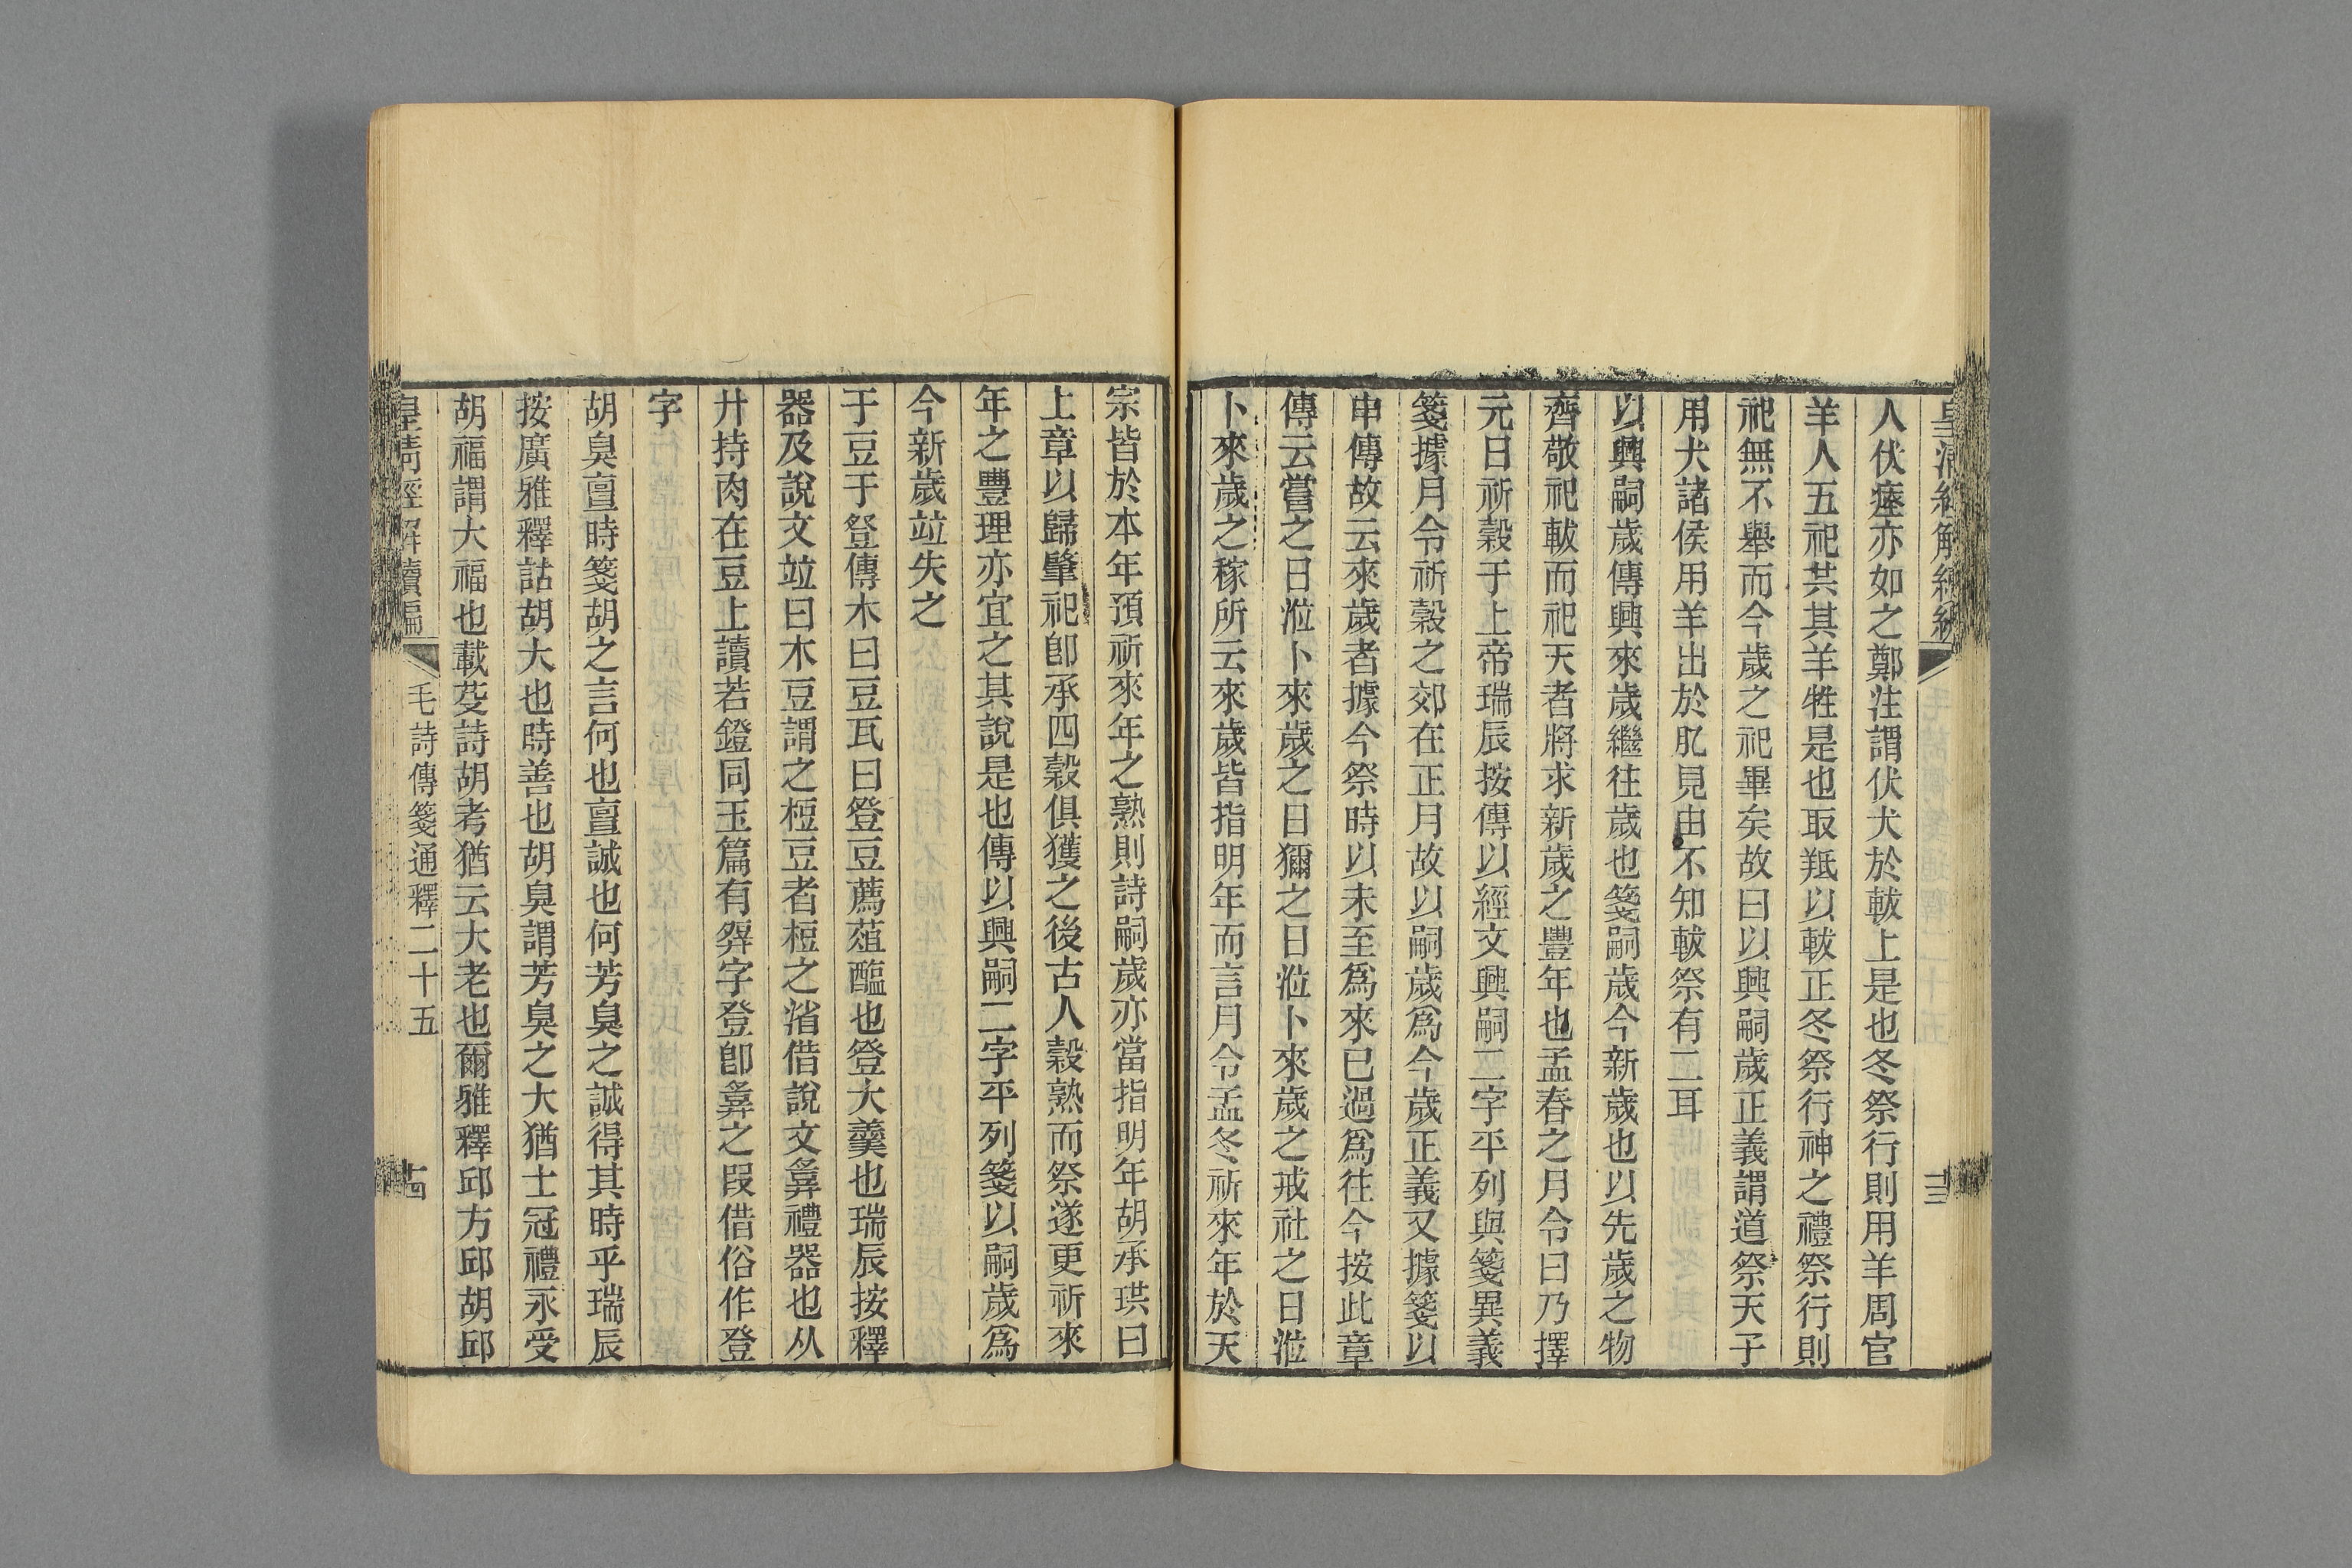 人伏瘞亦如之鄭注謂伏犬於軷上是也冬祭行則用羊周官
羊人五祀共其羊牲是也取羝以軷正冬祭行神之禮祭行則
祀無不舉而今歲之祀畢矣故曰以興嗣歲正義謂道祭天子
用犬諸侯用羊出於肊見由不知軷祭有二耳
以興嗣歲傳興來歲繼往歲也箋嗣歲今新歲也以先歲之物
齊敬祀軷而祀天者將求新歲之豐年也孟春之月令曰乃擇
元日祈穀于上帝瑞辰按傳以經文興嗣二字平列與箋異義
箋據月令祈穀之郊在正月故以嗣歲爲今歲正義又據箋以
申傳故云來歲者據今祭時以未至爲來已過爲往今按此章
傳云嘗之日涖卜來歲之日獮之日涖卜來歲之戒社之日涖
卜來歲之稼所云來歲皆指明年而言月令孟冬祈來年於天
宗皆於本年預祈來年之熟則詩嗣歲亦當指明年胡承珙曰
上章以歸肇祀卽承四穀俱獲之後古人穀熟而祭遂更祈來
年之豐理亦宜之其說是也傳以興嗣二字平列箋以嗣歲爲
今新歲竝失之
于豆于豋傳木曰豆瓦曰豋豆薦葅醢也豋大羹也瑞辰按釋
器及說文竝曰木豆謂之梪豆者梪之渻借說文𤼷禮器也从
廾持肉在豆上讀若鐙同玉篇有䍁字登卽𤼷之叚借俗作豋
字
胡臭亶時箋胡之言何也亶誠也何芳臭之誠得其時乎瑞辰
按廣雅釋詁胡大也時善也胡臭謂芳臭之大猶士冠禮永受
胡福謂大福也載芟詩胡考猶云大老也爾雅釋邱方邱胡邱
皇清經解續編
毛詩傳箋通釋二十五
十四